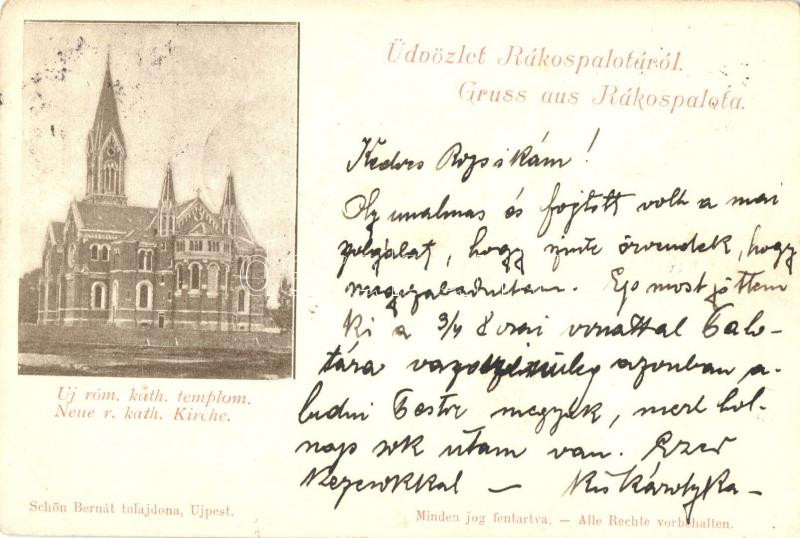 Üdvözlet Rákospalotáról.
Gruss aus Rákospalota.
Kedves Rozsikám!
Oly unalmas és fojtott volt a mai
szolgálat, hogy szinte örvendek, hogy
megszabadultam. Ép most jöttem
ki a 3/4 8 órai vonattal Palo-
tára azonban a-
ludni Pestre megyek, mert hol-
nap sok utam van. Ezer
kezicsókkal —
Uj róm. kath. templom.
Neue r. kath. Kirche.
Schön Bernát tulajdona, Ujpest.
Minden jog fentartva. — Alle Rechte vorbehalten.